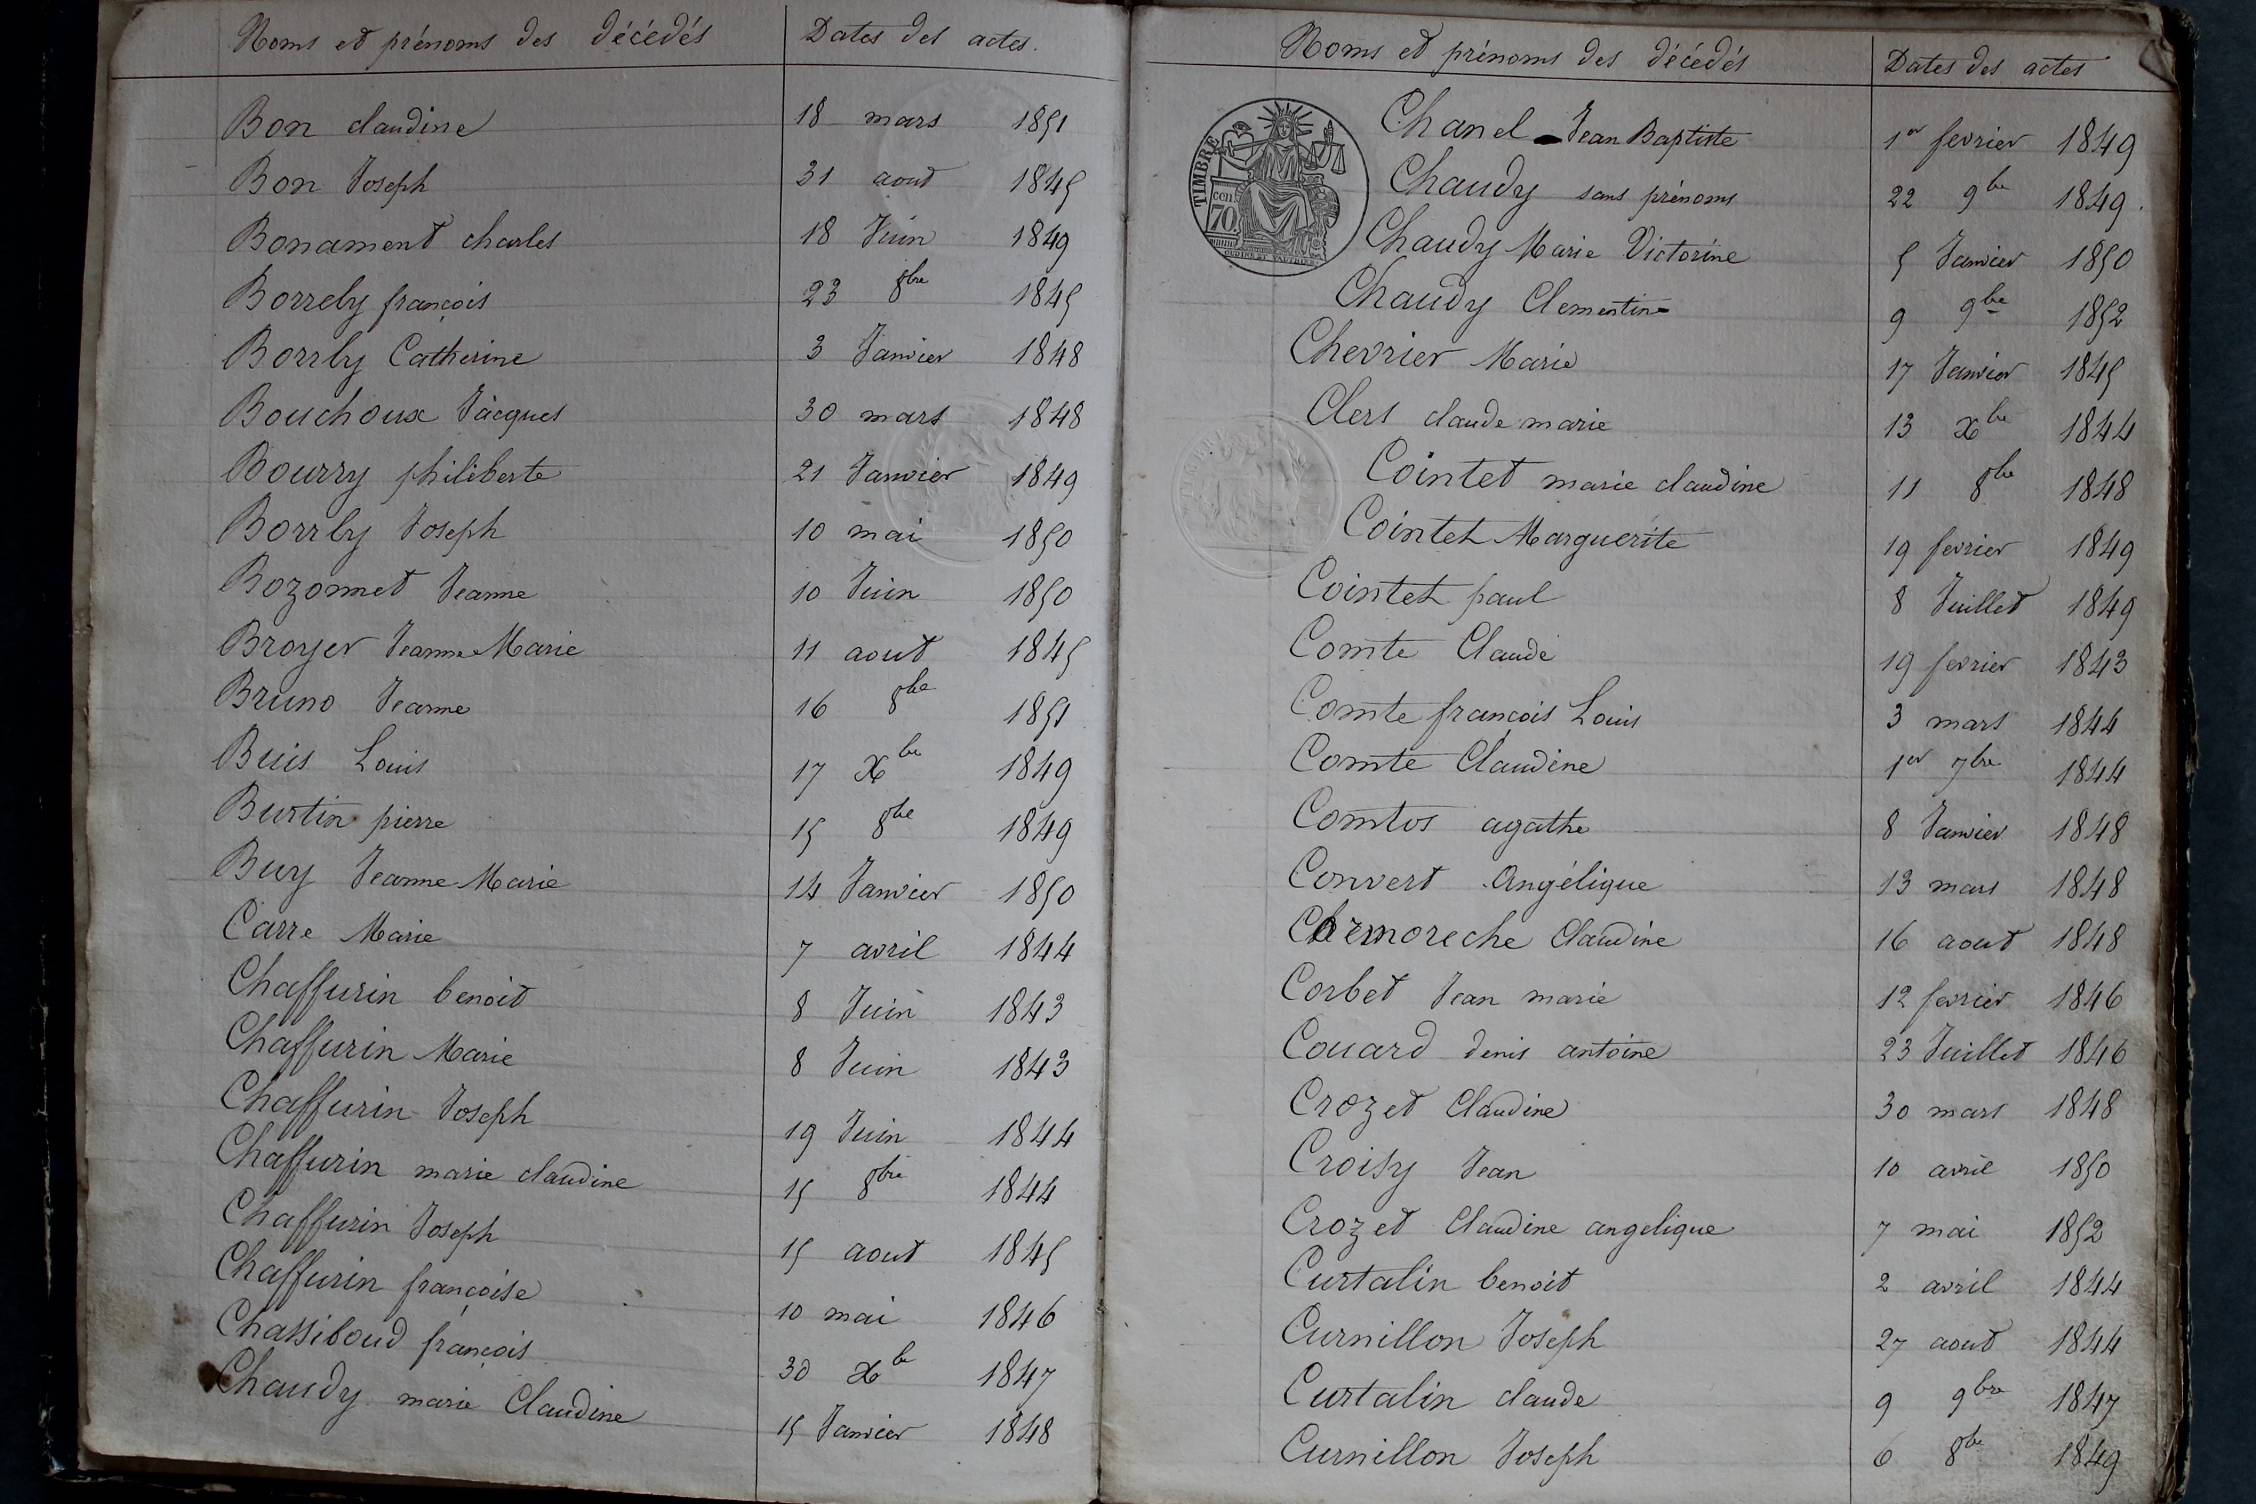 Noms et prénoms des décédés Dates des actes.
Bon claudine 18 mars 1851
Bon Joseph 31 aout 1845
Bonament charles 18 Juin 1849
Borrely françois 23 8bre 1845
Borrly Catherine 3 Janvier 1848
Bouchoux Jacques 30 mars 1848
Bourry philiberte 21 Janvier 1849
Borrly Joseph 10 mai 1850
Bozonnet Jeanne 10 Juin 1850
Broyer Jeanne Marie 11 aout 1845
Bruno Jeanne 16 8bre 1851
Buis Louis 17 Xbre 1849
Burtin pierre 15 8bre 1849
Buy Jeanne Marie 14 Janvier 1850
Carre Marie 7 avril 1844
Chaffurin benoit 8 Juin 1843
Chaffurin Marie 8 Juin 1843
Chaffurin Joseph 19 Juin 1844
Chaffurin marie claudine 15 8bre 1844
Chaffurin Joseph 15 aout 1845
Chaffurin françoise 10 mai 1846
Chassiboud françois 30 Xbre 1847
Chaudy marie Claudine 15 Janvier 1848
Noms et prénoms des décédés Dates des actes
TIMBRE
70 cen.
Chanel Jean Baptiste 1er fevrier 1849
Chaudy sans prénoms 22 9bre 1849.
Chaudy Marie Victorine 5 Janvier 1850
Chaudy Clementine 9 9bre 1852
Chevrier Marie 17 Janvier 1845
Clers claude marie 13 Xbre 1844
Cointet marie claudine 11 8bre 1848
Cointet Marguerite 19 fevrier 1849
Cointet paul 8 Juillet 1849
Comte Claude 19 fevrier 1843
Comte françois Louis 3 mars 1844
Comte Claudine 1er 7bre 1844
Comtos agathe 8 Janvier 1848
Convert Angélique 13 mars 1848
Claudine 16 aout 1848
Corbet Jean marie 12 fevrier 1846
Couard denis antoine 23 Juillet 1846
Crozet Claudine 30 mars 1848
Croisy Jean 10 avril 1850
Crozet Claudine angelique 7 mai 1852
Curtalin benoit 2 avril 1844
Curnillon Joseph 27 aout 1844
Curtalin claude 9 9bre 1847
Curnillon Joseph 6 8bre 1849